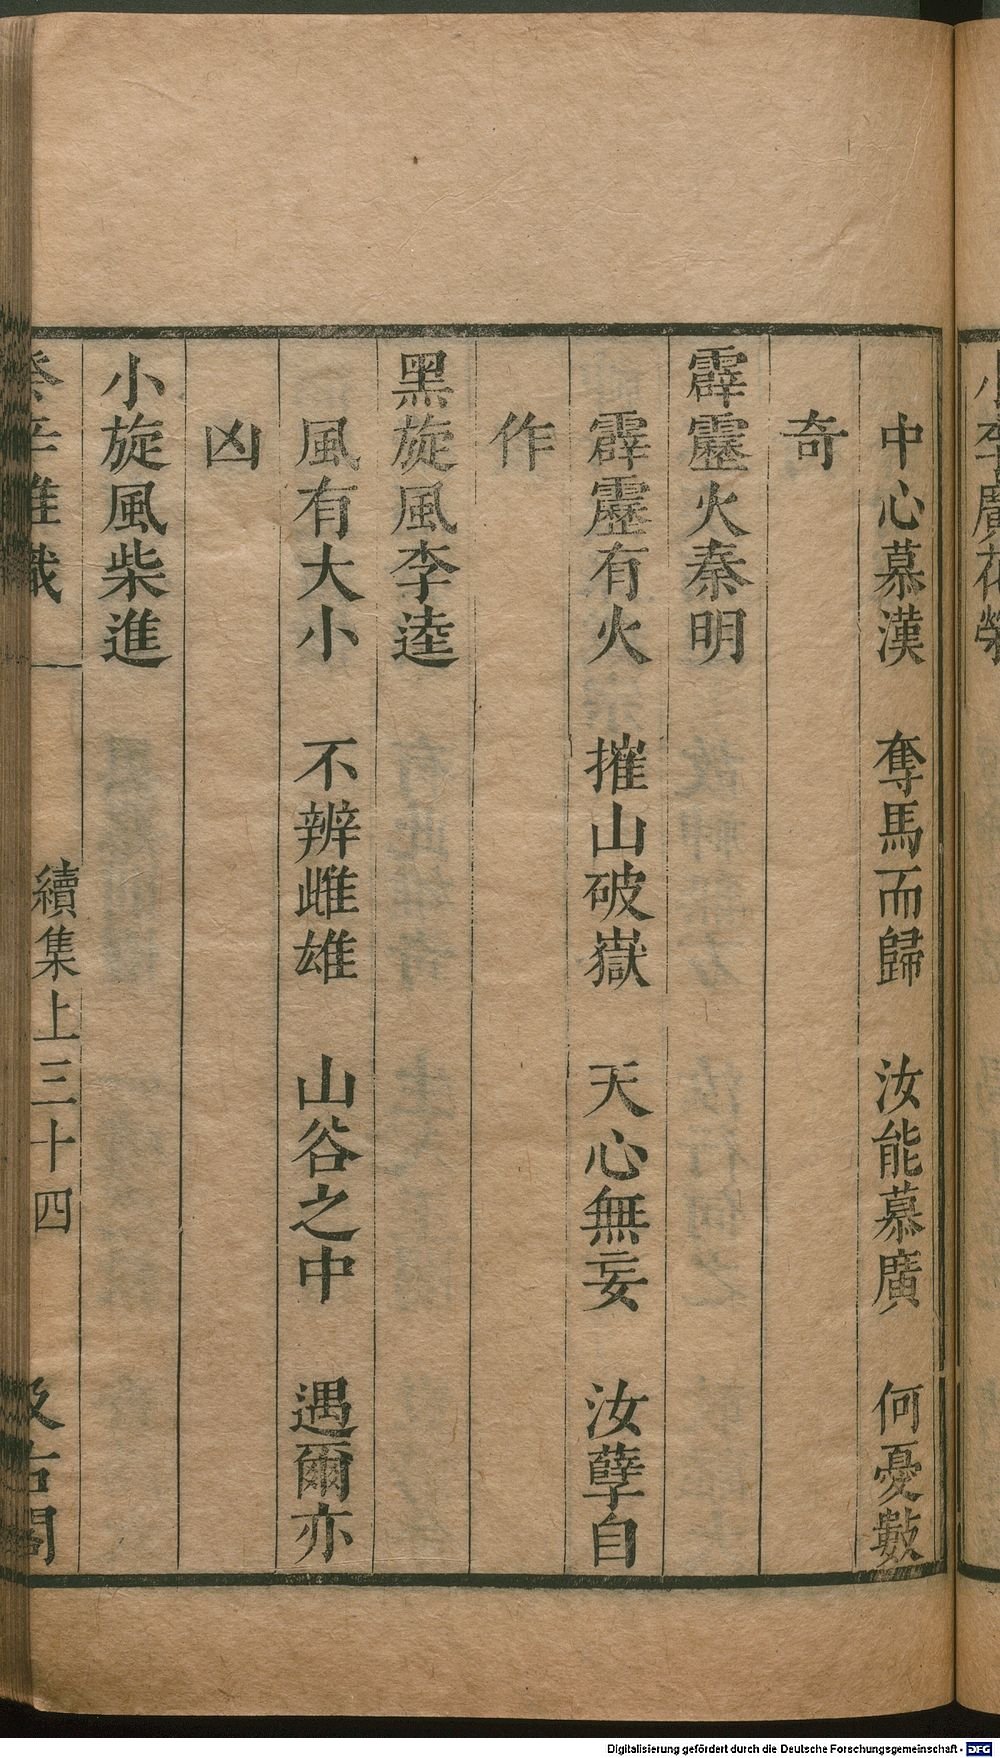 小李廣花榮
中心慕漢　奪馬而歸　汝能慕廣　何憂數
奇
霹靂火秦明
霹靂有火　摧山破嶽　天心無妄　汝孽自
作
黑旋風李逵
風有大小　不辨雌雄　山谷之中　遇爾亦
凶
小旋風柴進
癸辛雜識　續集上三十四　汲古閣
Digitalisierung gefördert durch die Deutsche Forschungsgemeinschaft - DFG